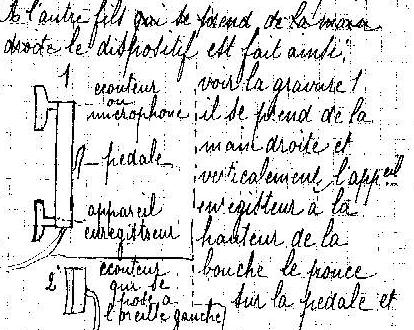 A l'autre fils qui se prend de la main
droite le dispositif est fait ainsi:
1
ecouteur
ou
microphone
pedale
appareil
enregistreur
2
ecouteur
qui se
pose a
l'oreille gauche
voir la gravure 1
il se prend de la
main droite et
verticalement l'appeil
enregisteur à la
hauteur de la
bouche le pouce
sur la pedale et